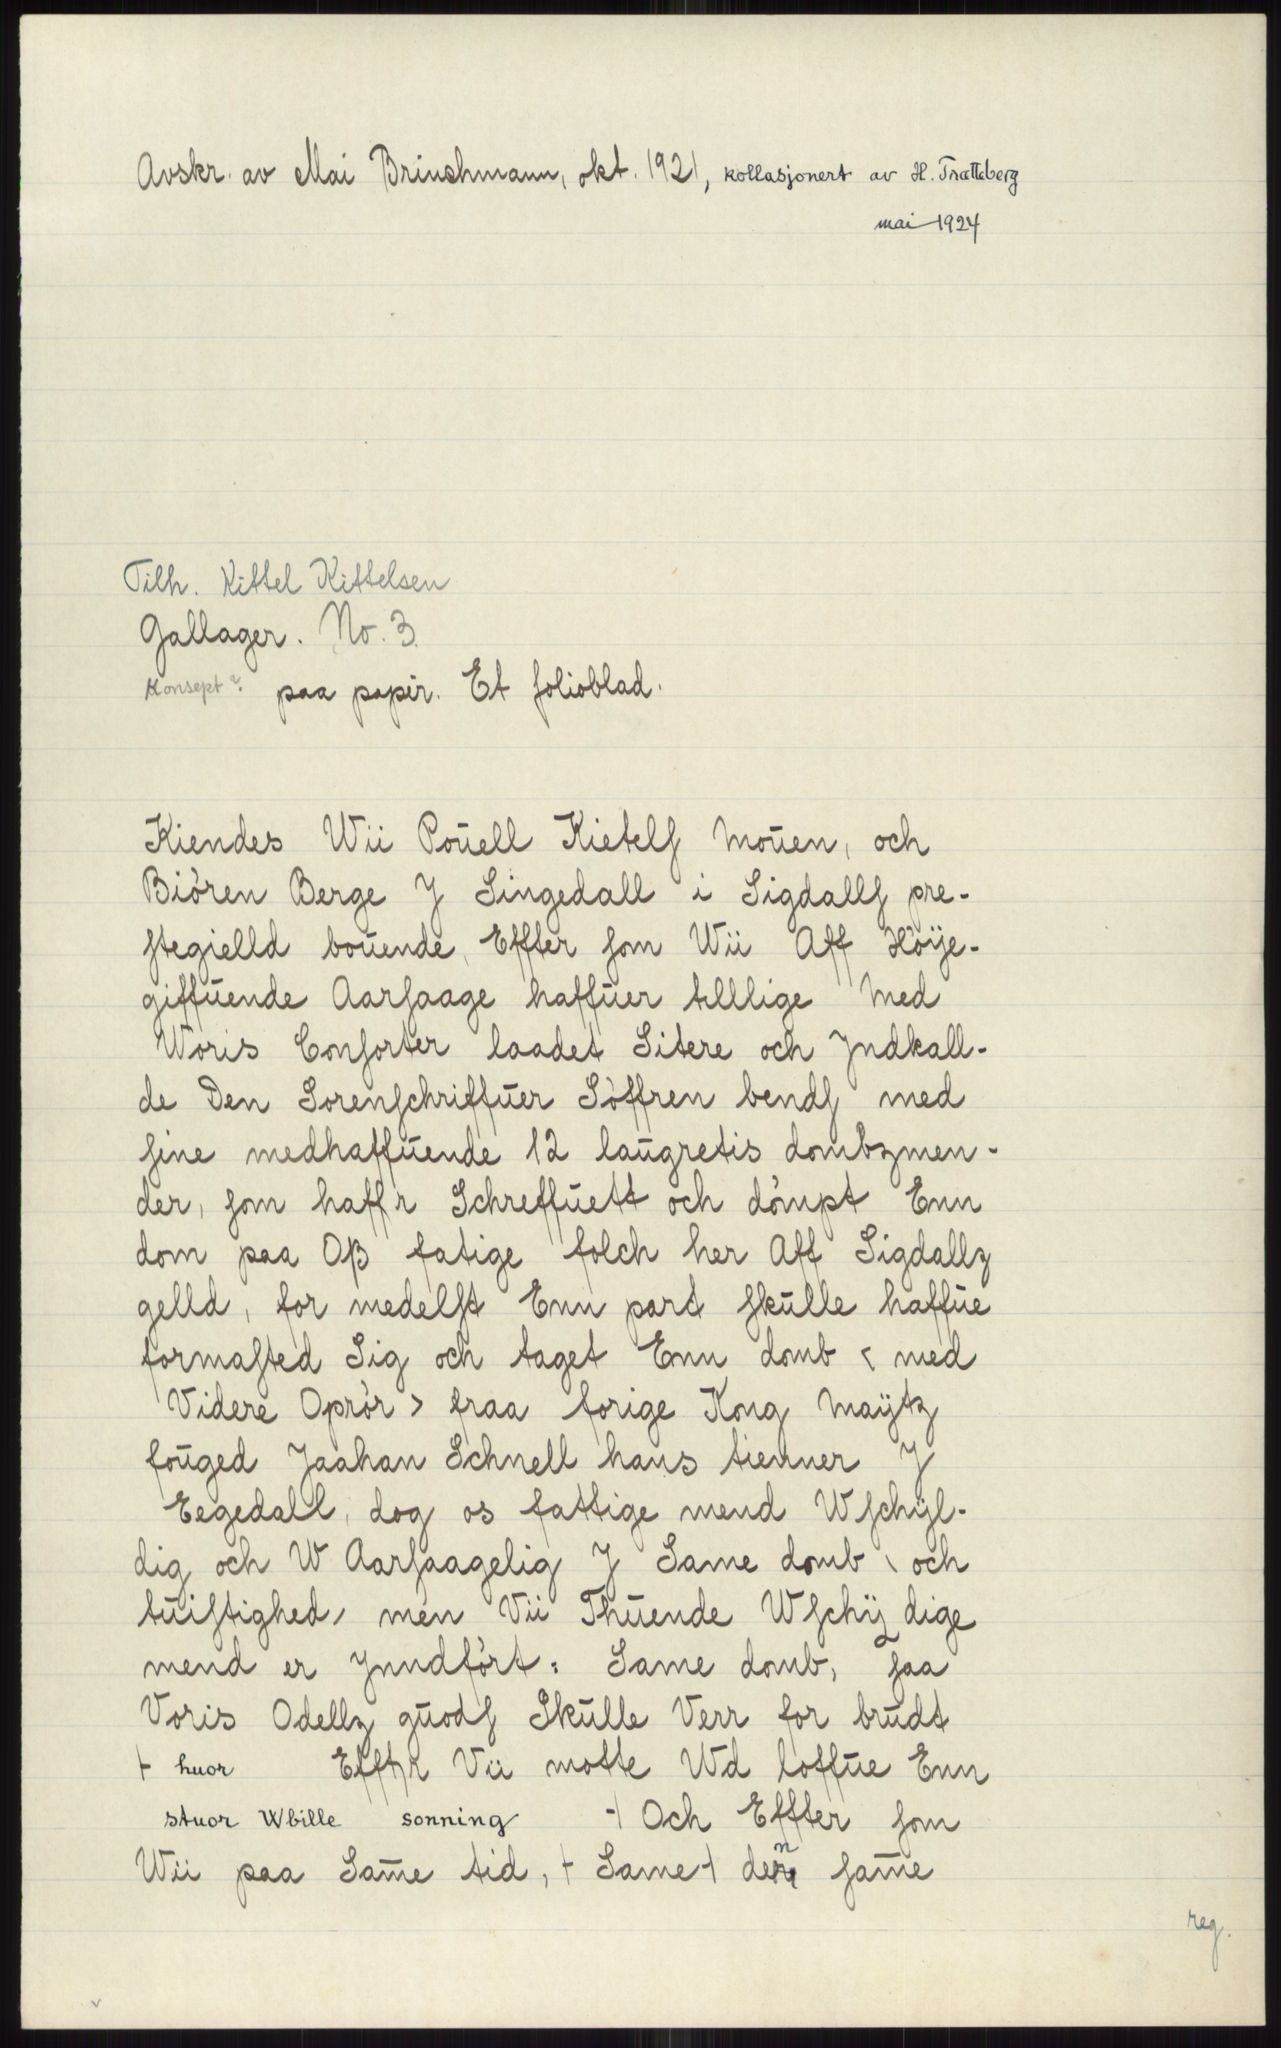 Avskr. av Mai Brinchmann, okt. 1921, kollasjonert av H. Trætteberg
mai 1924
Tilh. Kittel Kittelsen
Gallager. No. 3.
Konsept? paa papir. Et folioblad.
Kiendes Wii Poŭell Kietelſ Moŭen, och
Biören Berge J Singedall i Sigdallſ pre-
ſtegielld boŭende, Effter ſom Wii Aff Höÿe-
giffŭende Aarſaage haffŭer tilllige Med
Woris Conſorter laadet Sitere och Jndkall-
de Den Sorenſchriffŭer Söffren bendſ med
ſine medhaffŭende 12 laŭgretis dombzmen-
der, ſom haffr Schreffŭett och dömpt Enn
dom paa Oβ fatige folch her Aff Sigdallz
gelld, for medelſt Enn part ſkŭlle haffŭe
formaſted Sig och taget Enn domb < med
Videre Oprör > fraa forige Kong Maÿtz
foŭged Jaahan Schnell hans tienner J
Eegedall, dog os fattige mend Wſchÿl-
dig och W Aarſaagelig J Same domb, och
tŭiſtighed, men Vii Thŭende Wſchÿldige
mend er Jnndfört: Same domb, ſaa
Voris Odellz gŭodſ Skŭlle Verr for brŭdt
+ huor Efftr Vii motte Wd loffŭe Enn
stuor Wbille sonning + Och Effter ſom
Wii paa Sam̄e tid, + Same + den ſam̄e
reg.